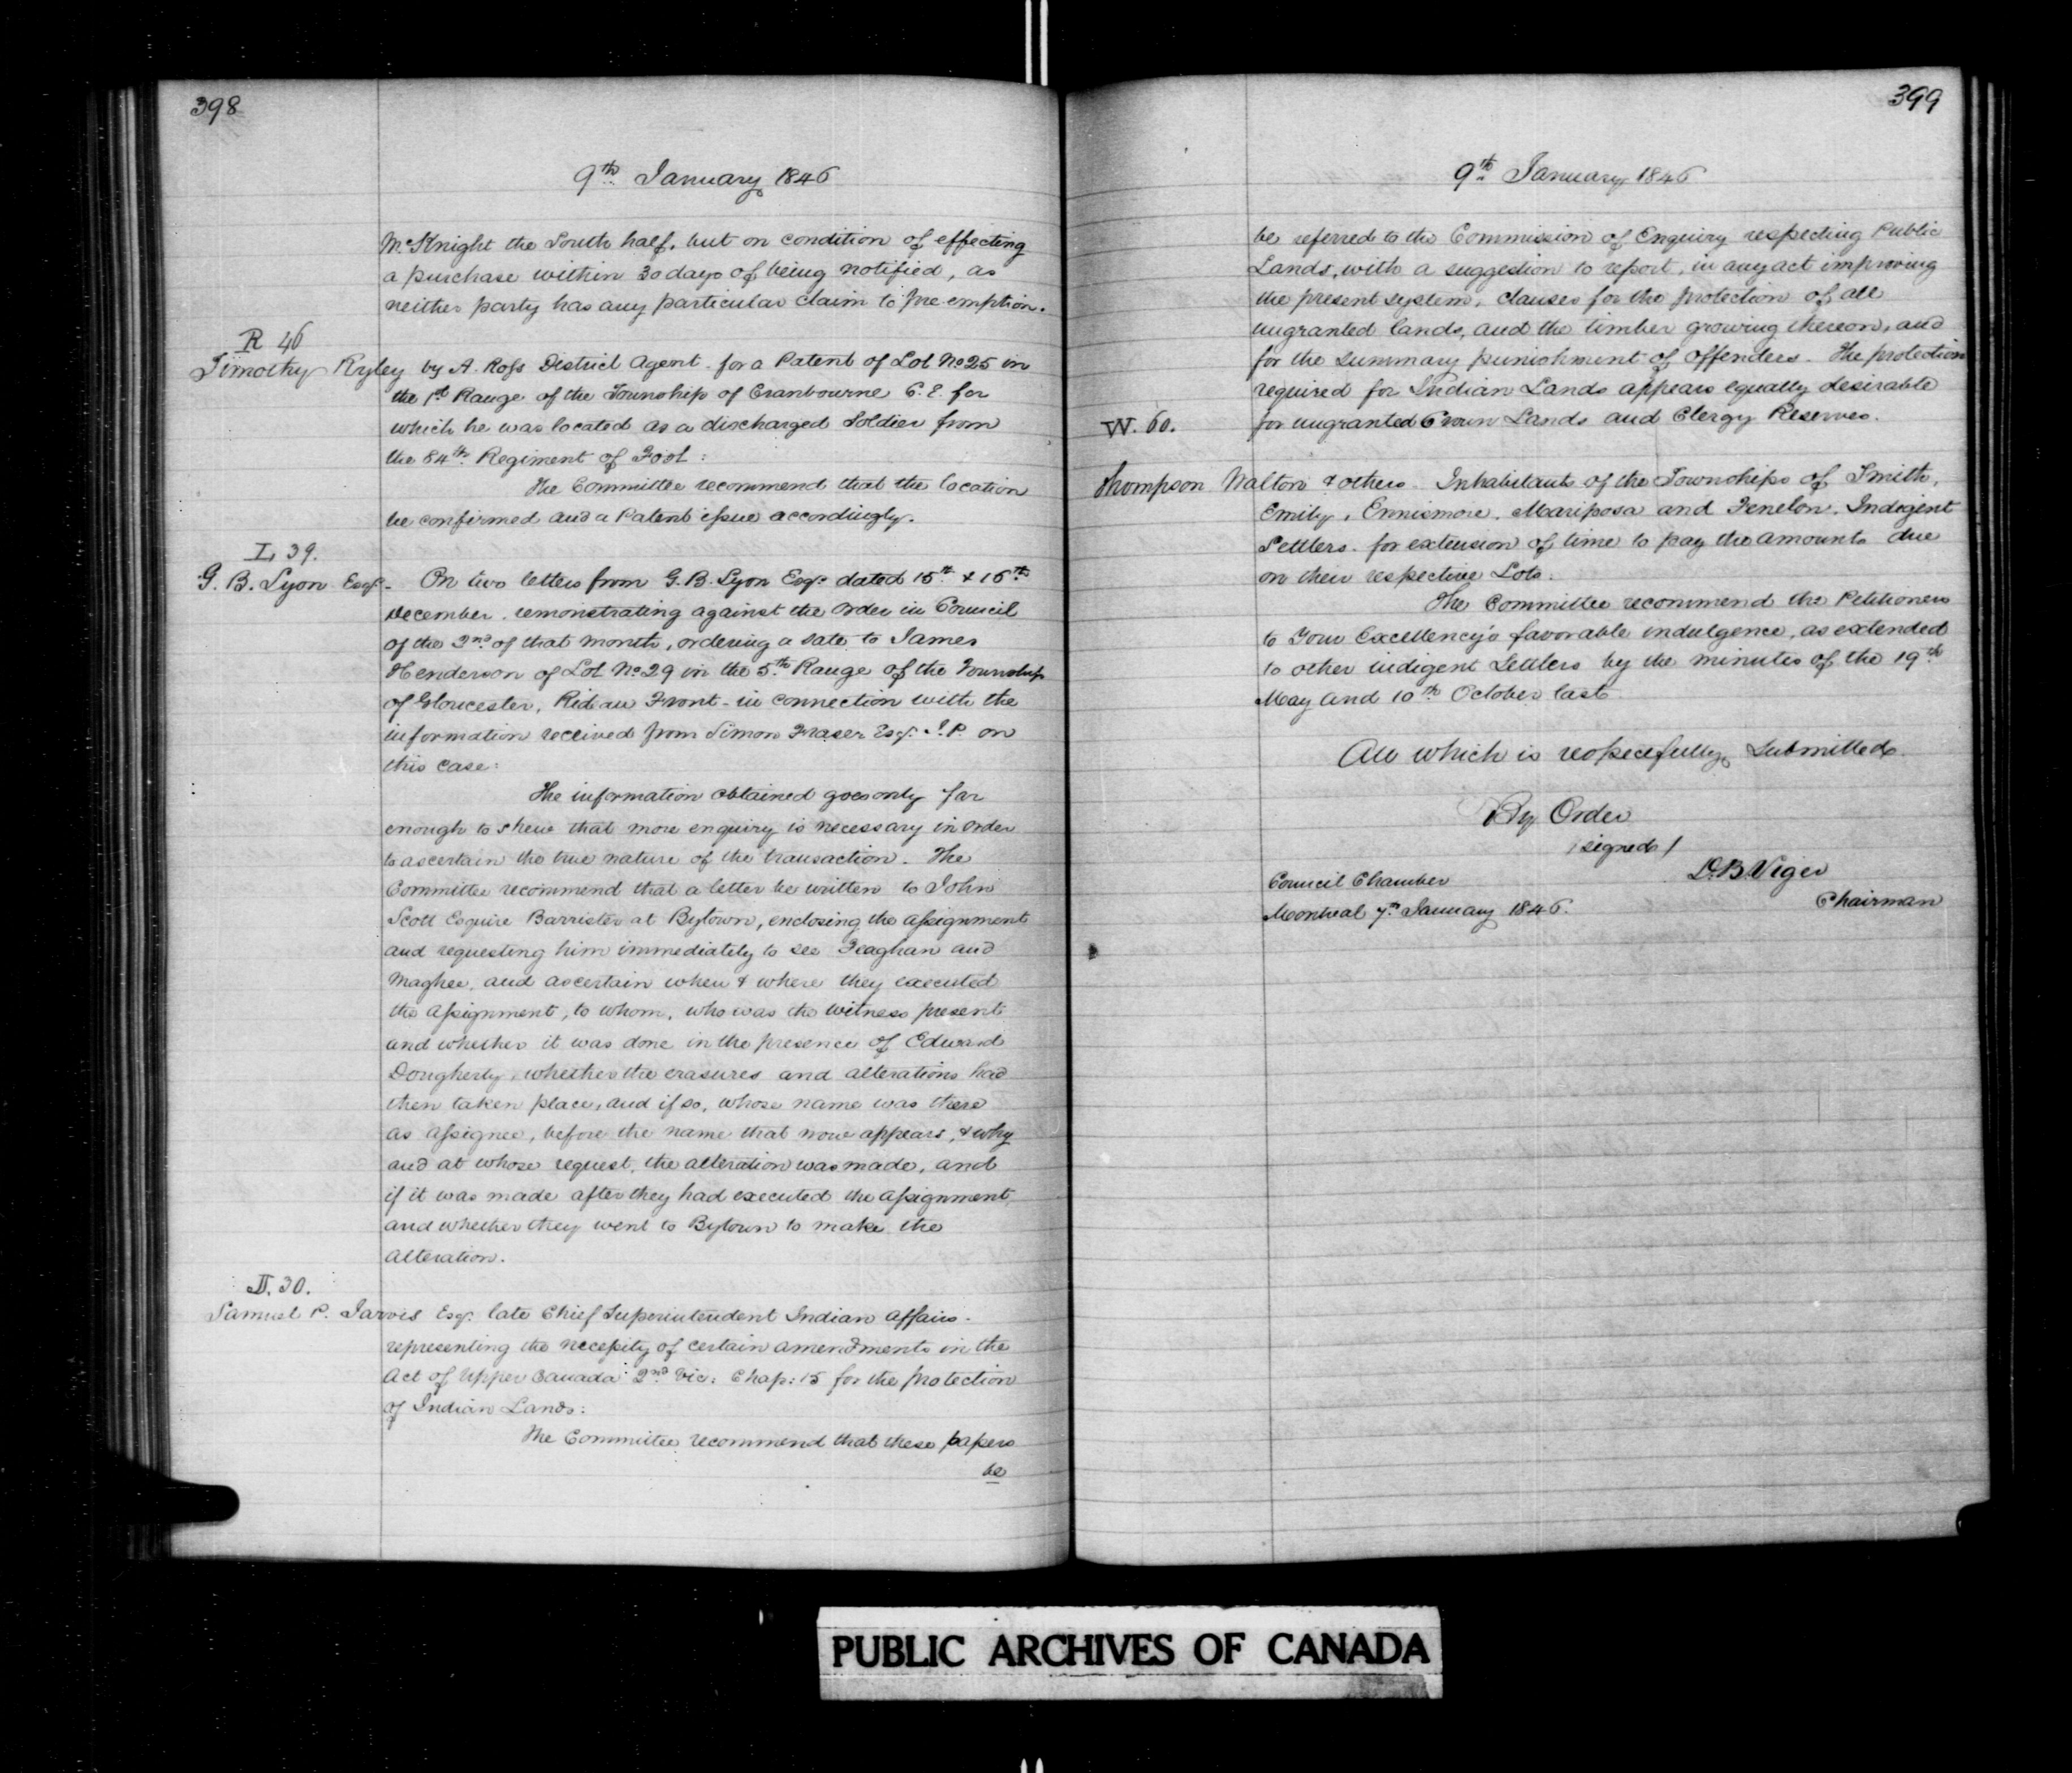 398
9th January 1846
McKnight the South half, but on condition of effecting
a purchase within 30 days of being notified, as
neither party has any particular claim to pre-emption.
R 46
Timothy Ryley by A. Ross District Agent for a Patent of Lot No 25 in
the 1st Range of the Township of Cranbourne C.E. for
which he was located as a discharged Soldier from
the 84th Regiment of Foot:
The Committee recommend that the location
be confirmed and a Patent issue accordingly.
L 39.
G. B. Lyon Esqr. On two letters from G. B. Lyon Esqr dated 15th & 16th
December, remonstrating against the Order in Council
of the 2nd of that month, ordering a sale to James
Henderson of Lot No 29 in the 5th Range of the Township
of Gloucester, Rideau Front - in connection with the
information received from Simon Fraser Esqr J.P. on
this case:
The information obtained goes only far
enough to shew that more enquiry is necessary in order
to ascertain the true nature of the transaction. The
Committee recommend that a letter be written to John
Scott Esquire Barrister at Bytown, enclosing the assignment
and requesting him immediately to see Feaghan and
Maghee, and ascertain when & where they executed
the assignment, to whom, who was the witness present
and whether it was done in the presence of Edward
Dougherty, whether the erasures and alterations had
then taken place, and if so, whose name was there
as assignee, before the name that now appears, & why
and at whose request, the alteration was made, and
if it was made after they had executed the assignment,
and whether they went to Bytown to make the
alteration.
J. 30.
Samuel P. Jarvis Esqr. late Chief Superintendent Indian Affairs.
representing the necessity of certain amendments in the
Act of Upper Canada 2nd Vic: Chap: 15 for the protection
of Indian Lands:
The Committee recommend that these papers
be
399
9th January 1846
be referred to the Commission of Enquiry respecting Public
Lands, with a suggestion to report, in any act improving
the present system, clauses for the protection of all
ungranted lands, and the timber growing thereon, and
for the summary punishment of offenders. The protection
required for Indian Lands appears equally desirable
for ungranted Crown Lands and Clergy Reserves.
W. 60.
Thompson Walton & others Inhabitants of the Townships of Smith,
Emily, Ennismore, Mariposa and Fenelon, Indigent
Settlers for extension of time to pay the amounts due
on their respective Lots:
The Committee recommend the Petitioners
to Your Excellency's favorable indulgence, as extended
to other indigent Settlers by the minutes of the 19th
May and 10th October last.
All which is respectfully Submitted
By Order
(signed)
D. B. Viger
Chairman
Council Chamber
Montreal 7th January 1846.
PUBLIC ARCHIVES OF CANADA